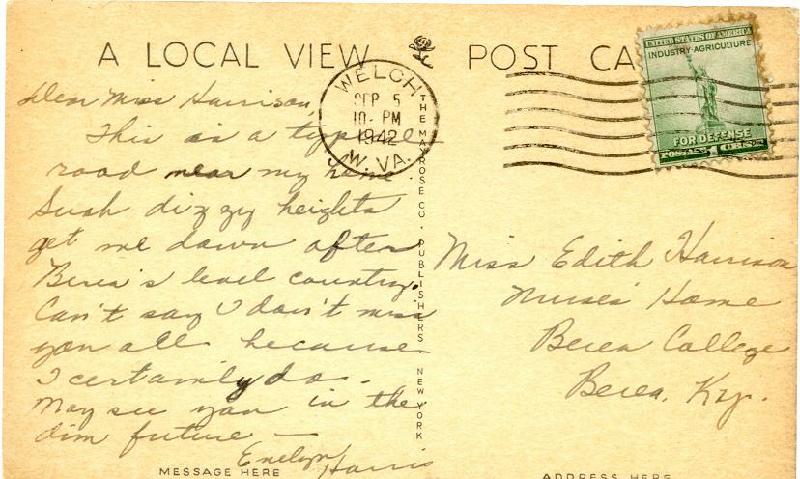 A LOCAL VIEW
POST CA
UNITED STATES OF AMERICA
INDUSTRY·AGRICULTURE
FOR DEFENSE
POSTAGE 1 CENT
WELCH
SEP 5
10-PM
1942
W. VA.
Dear Miss Harrison,
This is a typical
road near my home
Such dizzy heights
get me down after
Berea's level country.
Can't say I don't miss
you all because
I certainly do.
May see you in the
dim future —
Evelyn
Harris
MESSAGE HERE
THE MAYROSE CO. PUBLISHERS NEW YORK
Miss Edith Harrison
Nurses Home
Berea College
Berea, Ky.
ADDRESS HERE